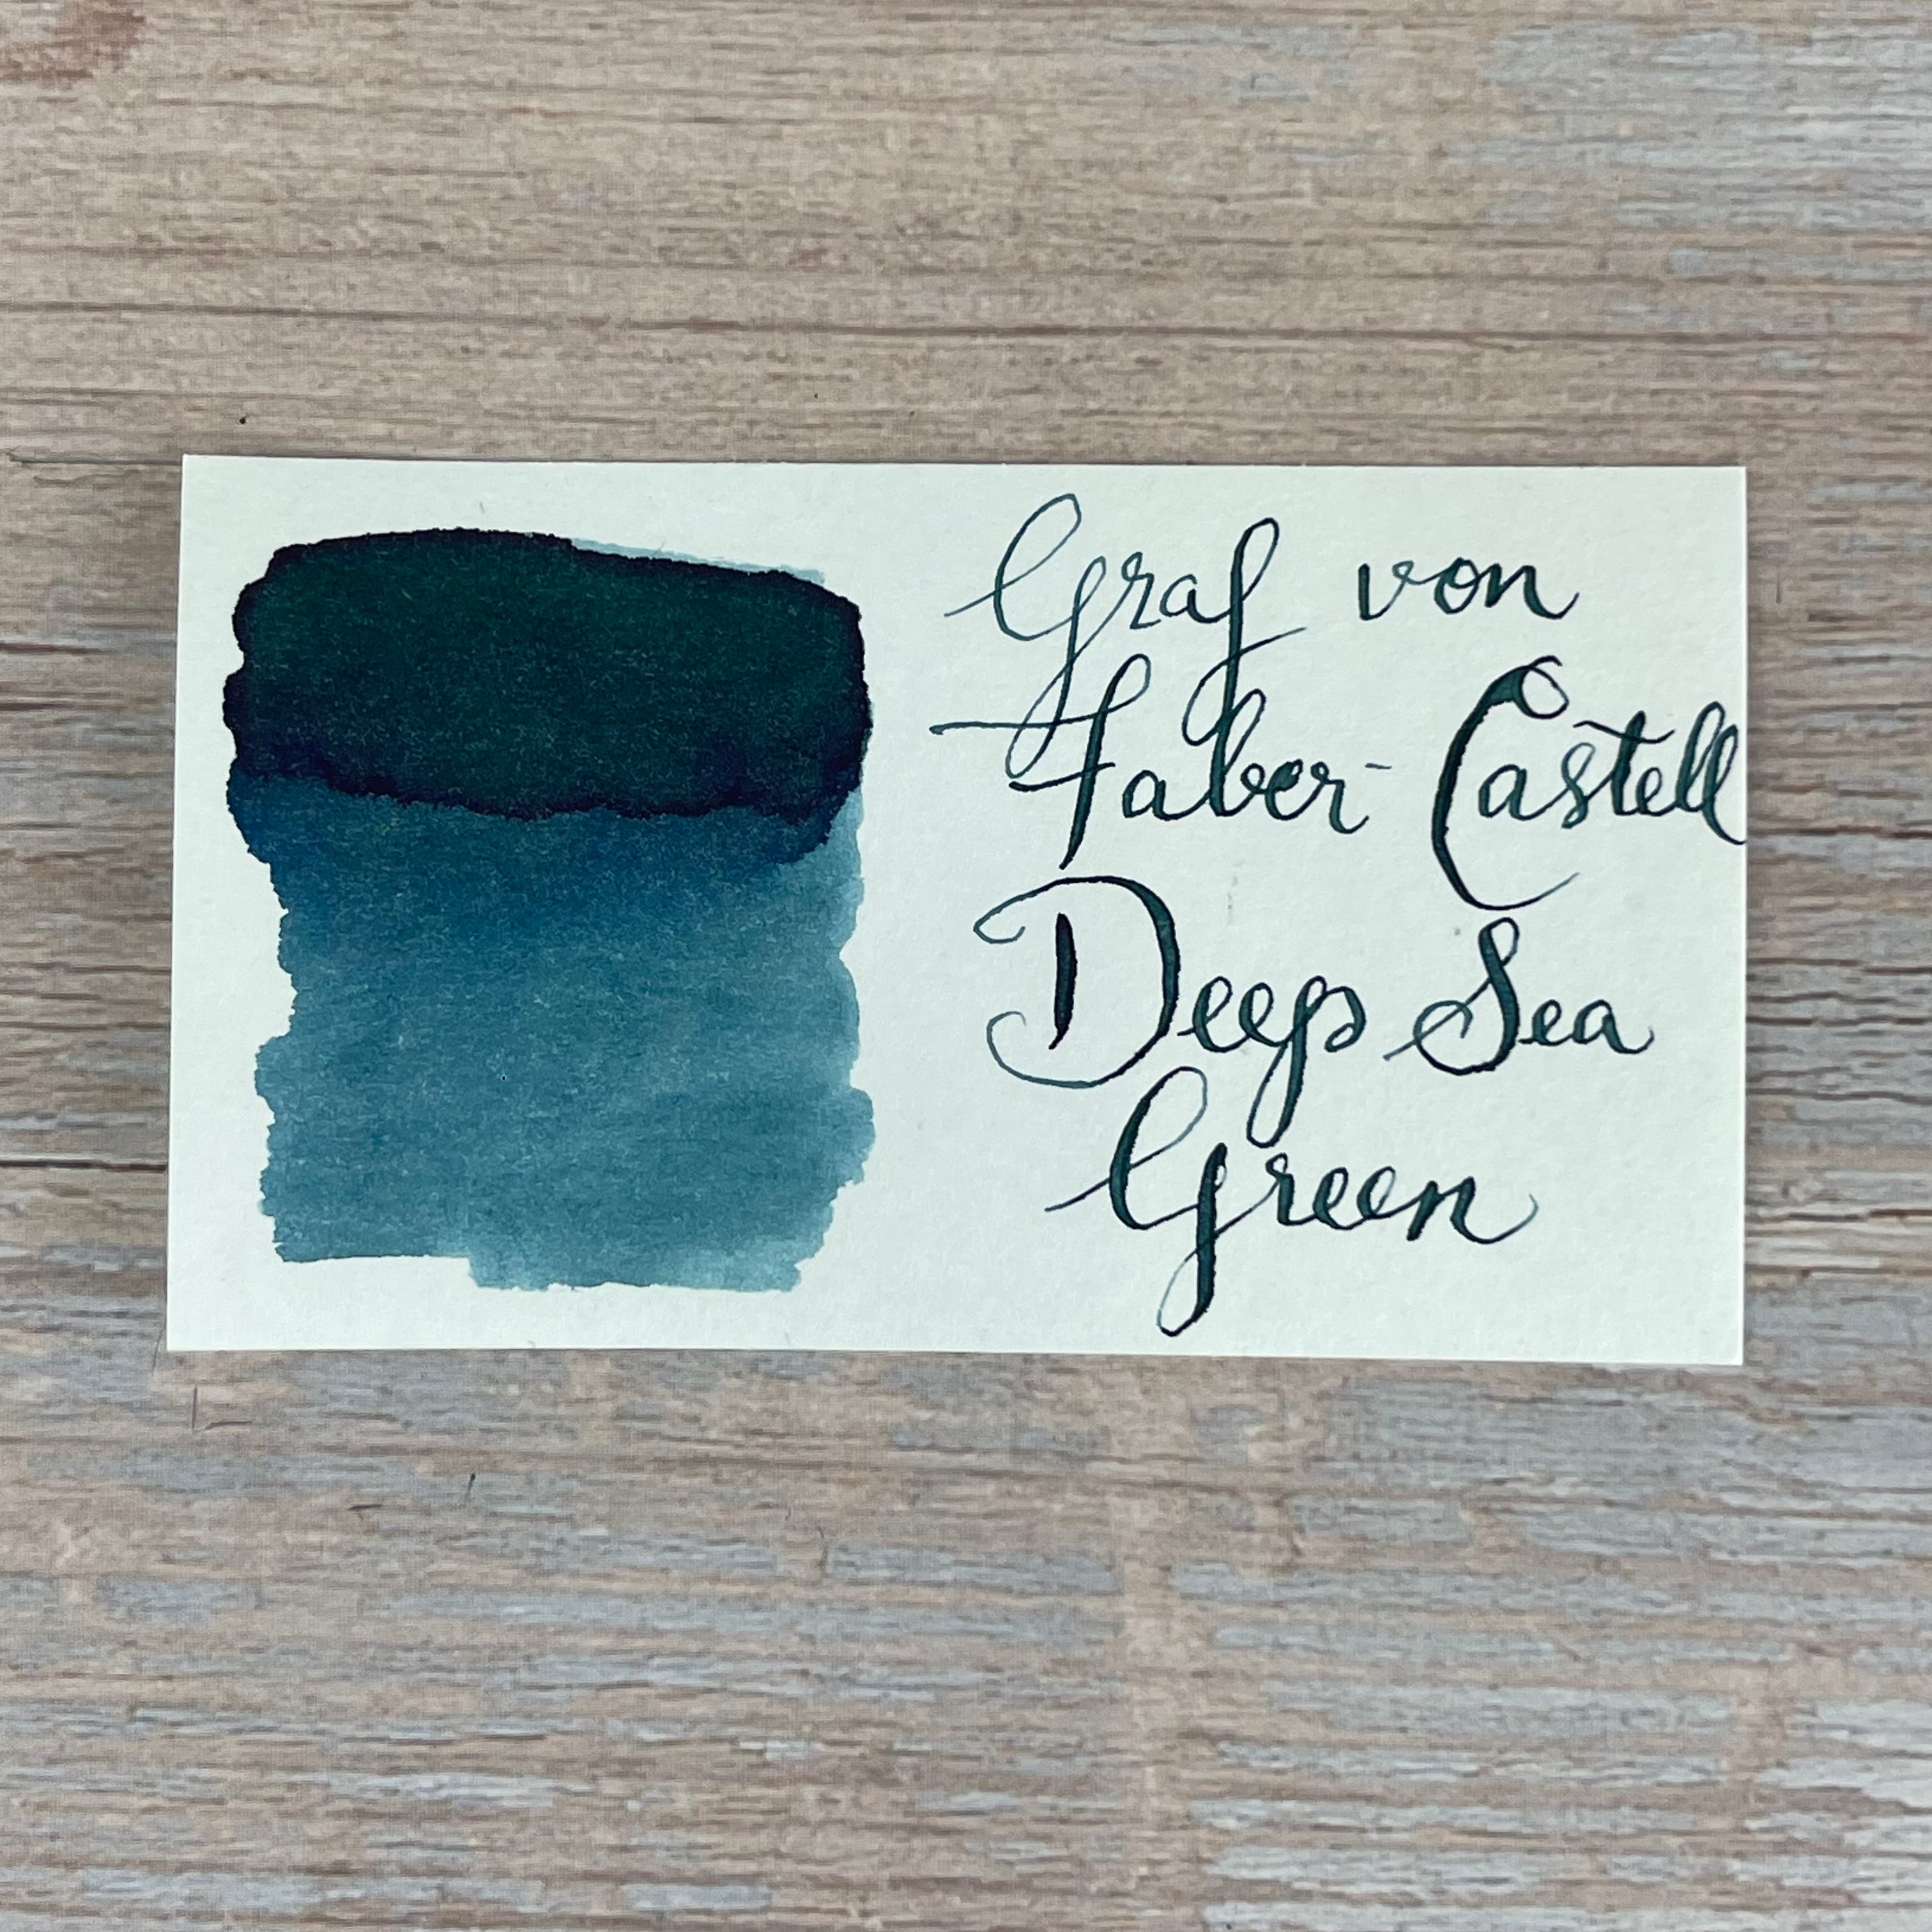 Graf von
Faber-Castell
Deep Sea
Green